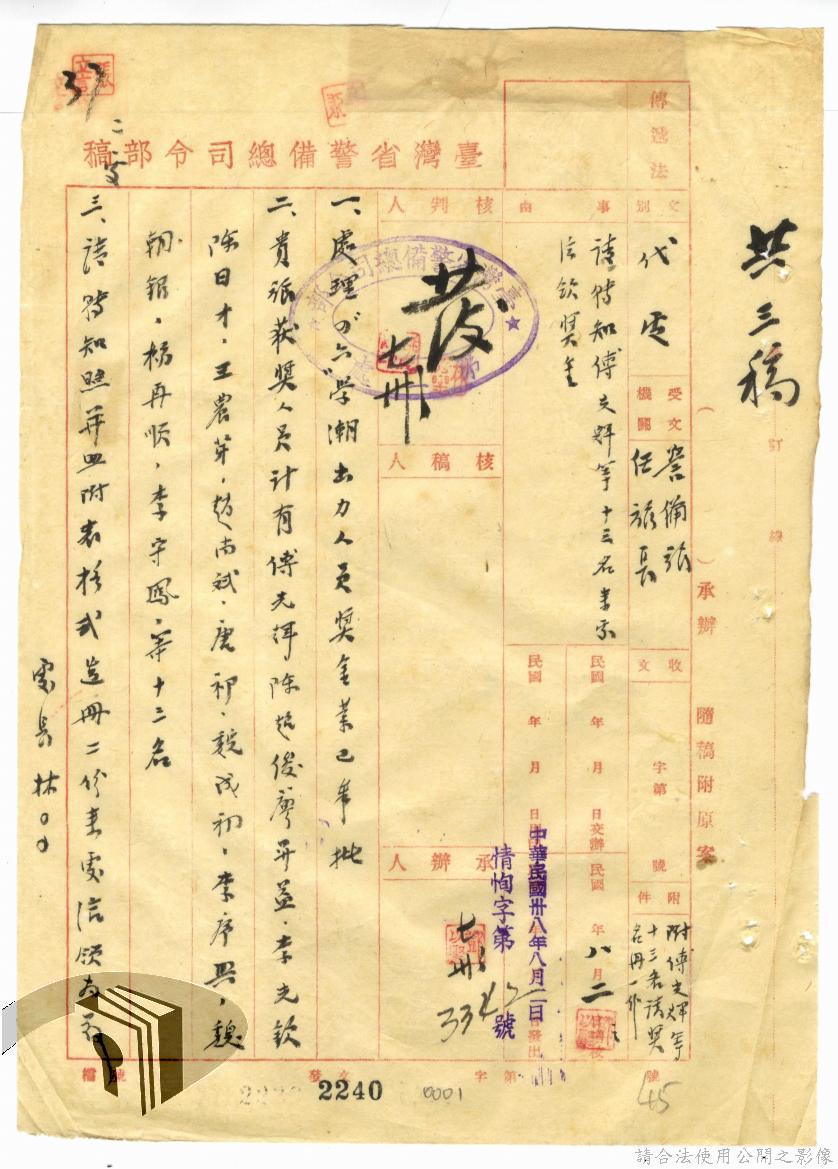 共三稿
訂
線
（　　）承辦　隨稿附原案
臺灣省警備總司令部稿
37
傳遞法
文別
代電
受文機關
警備旅
任旅長
收文
字第
號
附件
附傅光輝等
十三名請獎
名冊一份
事由
請轉知傅光輝等十三名來京
信欽獎金
民國　年　月　日交辦
民國　年八月二日
民國　年　月　日
中華民國卅八年八月二日
情恂字第3342號
發出
核判人
發
七卅
臺灣省警備總司令部
核稿人
承辦人
七卅
一、處理四六學潮出力人員獎金業已奉批
二、貴旅獲獎人員計有傅光輝陳超俊廖昇益、李光欽
陳日才、王農芽、趙尚斌、唐初、魏成初、李序興、魏
朝銀、楊再順、李守鳳、等十三名
三、請轉知照并照附表格式造冊二份來處信領為荷
處長林○○
檔　號
發文
字
第
號
2240
0001
45
請合法使用公開之影像